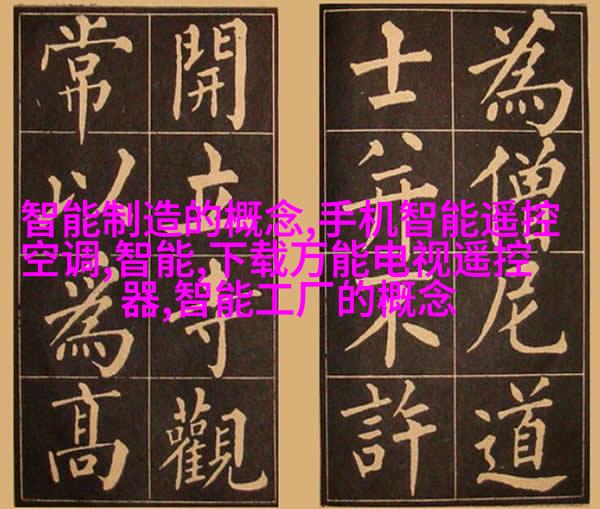 為僧尼道
士并不許
開立寺觀
常以為高
智能制造的概念,手机智能遥控
空调,智能,下载万能电视遥控
器,智能工厂的概念